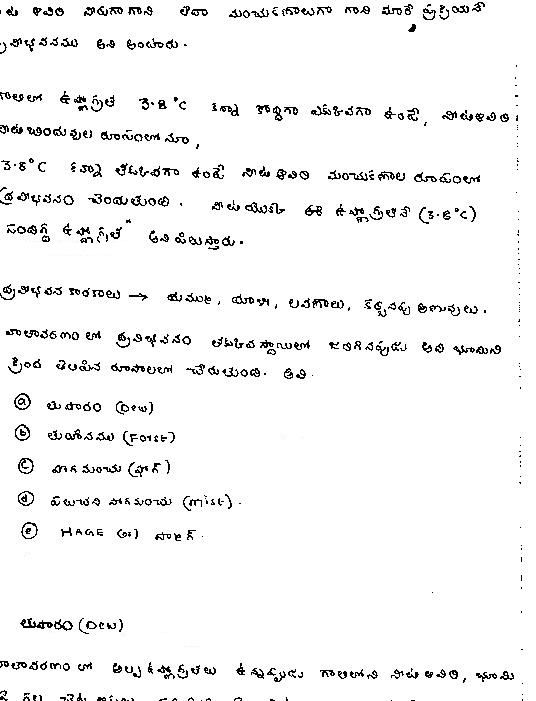 నీటి ఆవిరి నీరుగా గాని లేదా మంచుకణాలుగా గాని మారే ప్రక్రియనే
ద్రవీభవనము అని అంటారు.
గాలిలో ఉష్ణోగ్రత 3.8°C కన్నా కొద్దిగా ఎక్కువగా ఉంటే, నీటిఆవిరి
నీటి బిందువుల రూపంలోనూ,
3.8°C కన్నా తక్కువగా ఉంటే నీటి ఆవిరి మంచుకణాల రూపంలో
ద్రవీభవనం చెందుతుంది. నీటి యొక్క ఈ ఉష్ణోగ్రతనే (3.8°C)
సందిగ్ధ ఉష్ణోగ్రత" అని పిలుస్తారు.
ద్రవీభవన కారకాలు → దుమ్ము, ధూళి, లవణాలు, కర్బనపు అణువులు.
వాతావరణం లో ద్రవీభవనం తక్కువ స్థాయిలో జరిగినప్పుడు అది భూమిని
క్రింద తెలిపిన రూపాలలో చేరుతుంది. అవి.
ⓐ తుషారం (Dew)
ⓑ తుహినము (Forst)
ⓒ పొగమంచు (ఫాగ్)
ⓓ పలుచని పొగమంచు (mist).
ⓔ HAGE (or) స్మాగ్.
తుషారం (Dew)
వాతావరణం లో అల్ప ఉష్ణోగ్రతలు ఉన్నప్పుడు గాలిలోని నీటి ఆవిరి, భూమి